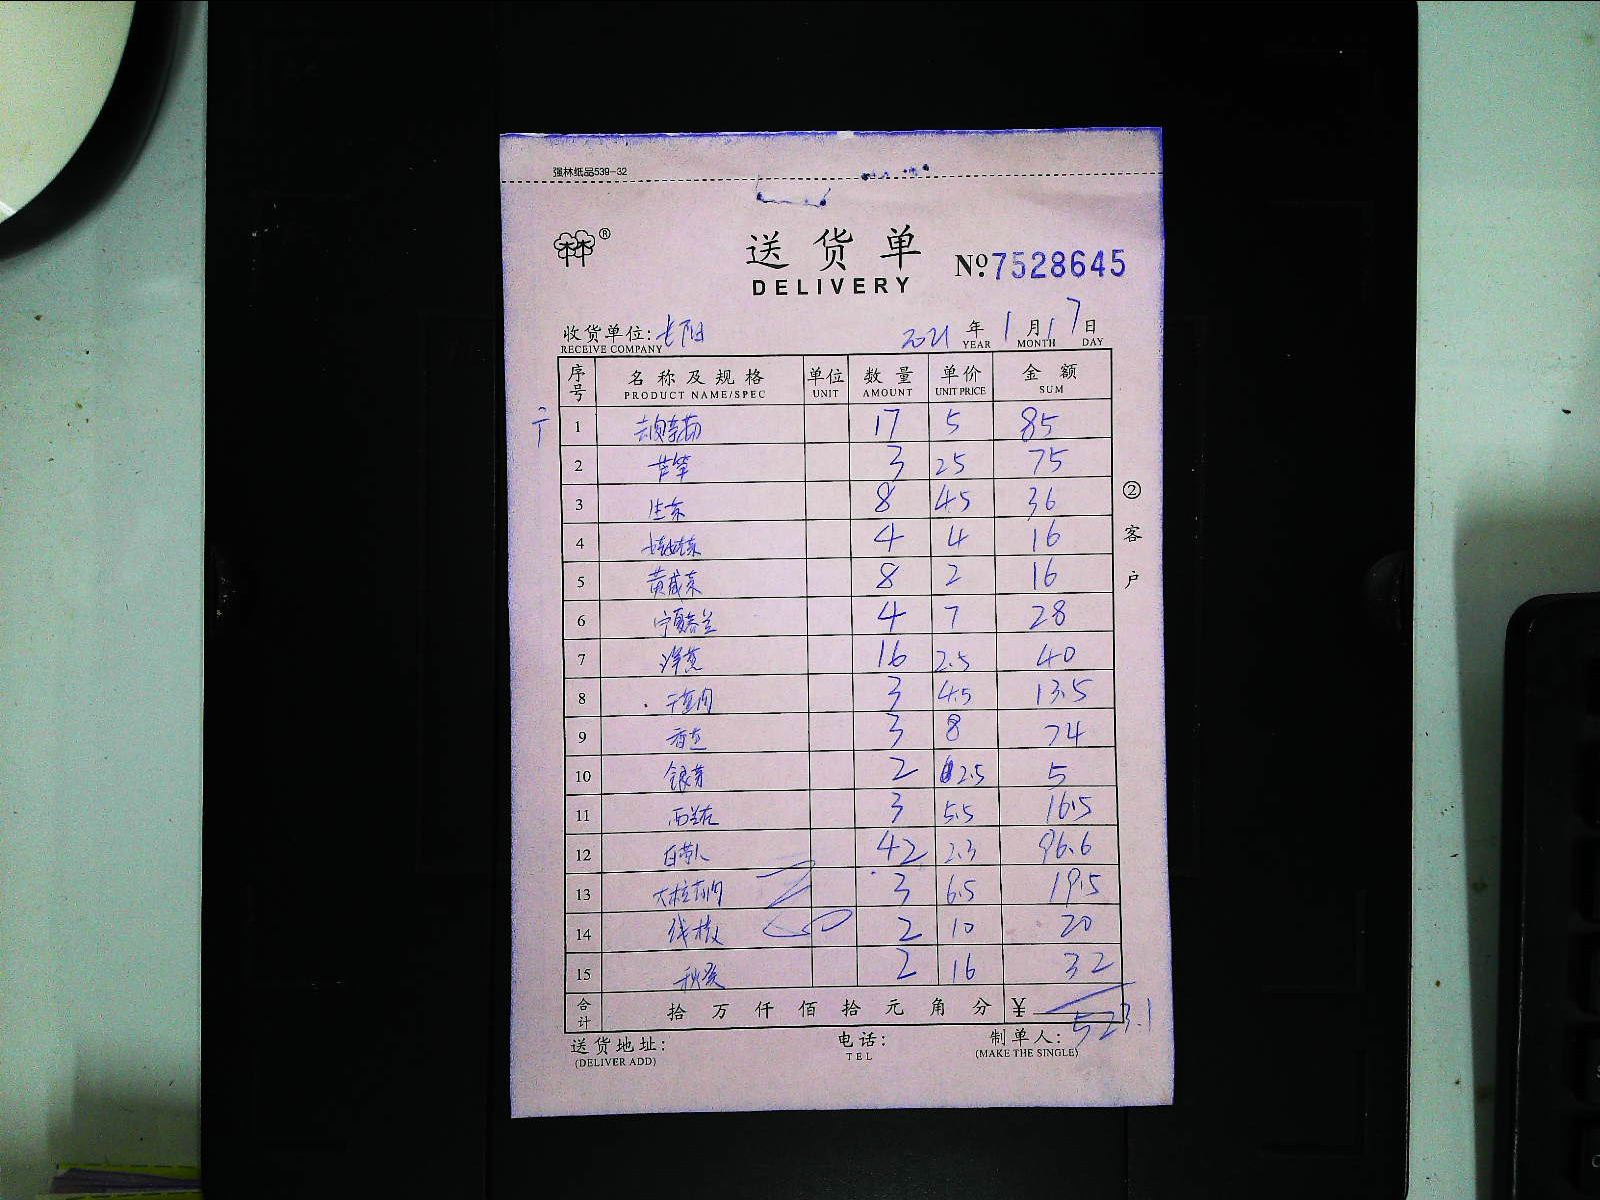 强林纸品539-32
林林 ®
送货单 Nº 7528645
DELIVERY
收货单位: 长阳 2021 年 1 月 17 日
RECEIVE COMPANY YEAR MONTH DAY
序号 名称及规格 单位 数量 单价 金额
PRODUCT NAME/SPEC UNIT AMOUNT UNIT PRICE SUM
1 17 5 85
2 芦笋 3 25 75
3 生菜 8 4.5 36
4 4 4 16
5 黄咸菜 8 2 16
6 宁夏 4 7 28
7 洋葱 16 2.5 40
8 3 4.5 13.5
9 3 8 24
10 银芽 2 2.5 5
11 西芹 3 5.5 16.5
12 42 2.3 96.6
13 3 6.5 19.5
14 线椒 2 10 20
15 秋葵 2 16 32
合计 拾 万 仟 佰 拾 元 角 分 ¥ 523.1
送货地址: 电话: 制单人:
(DELIVER ADD) TEL (MAKE THE SINGLE)
②客户